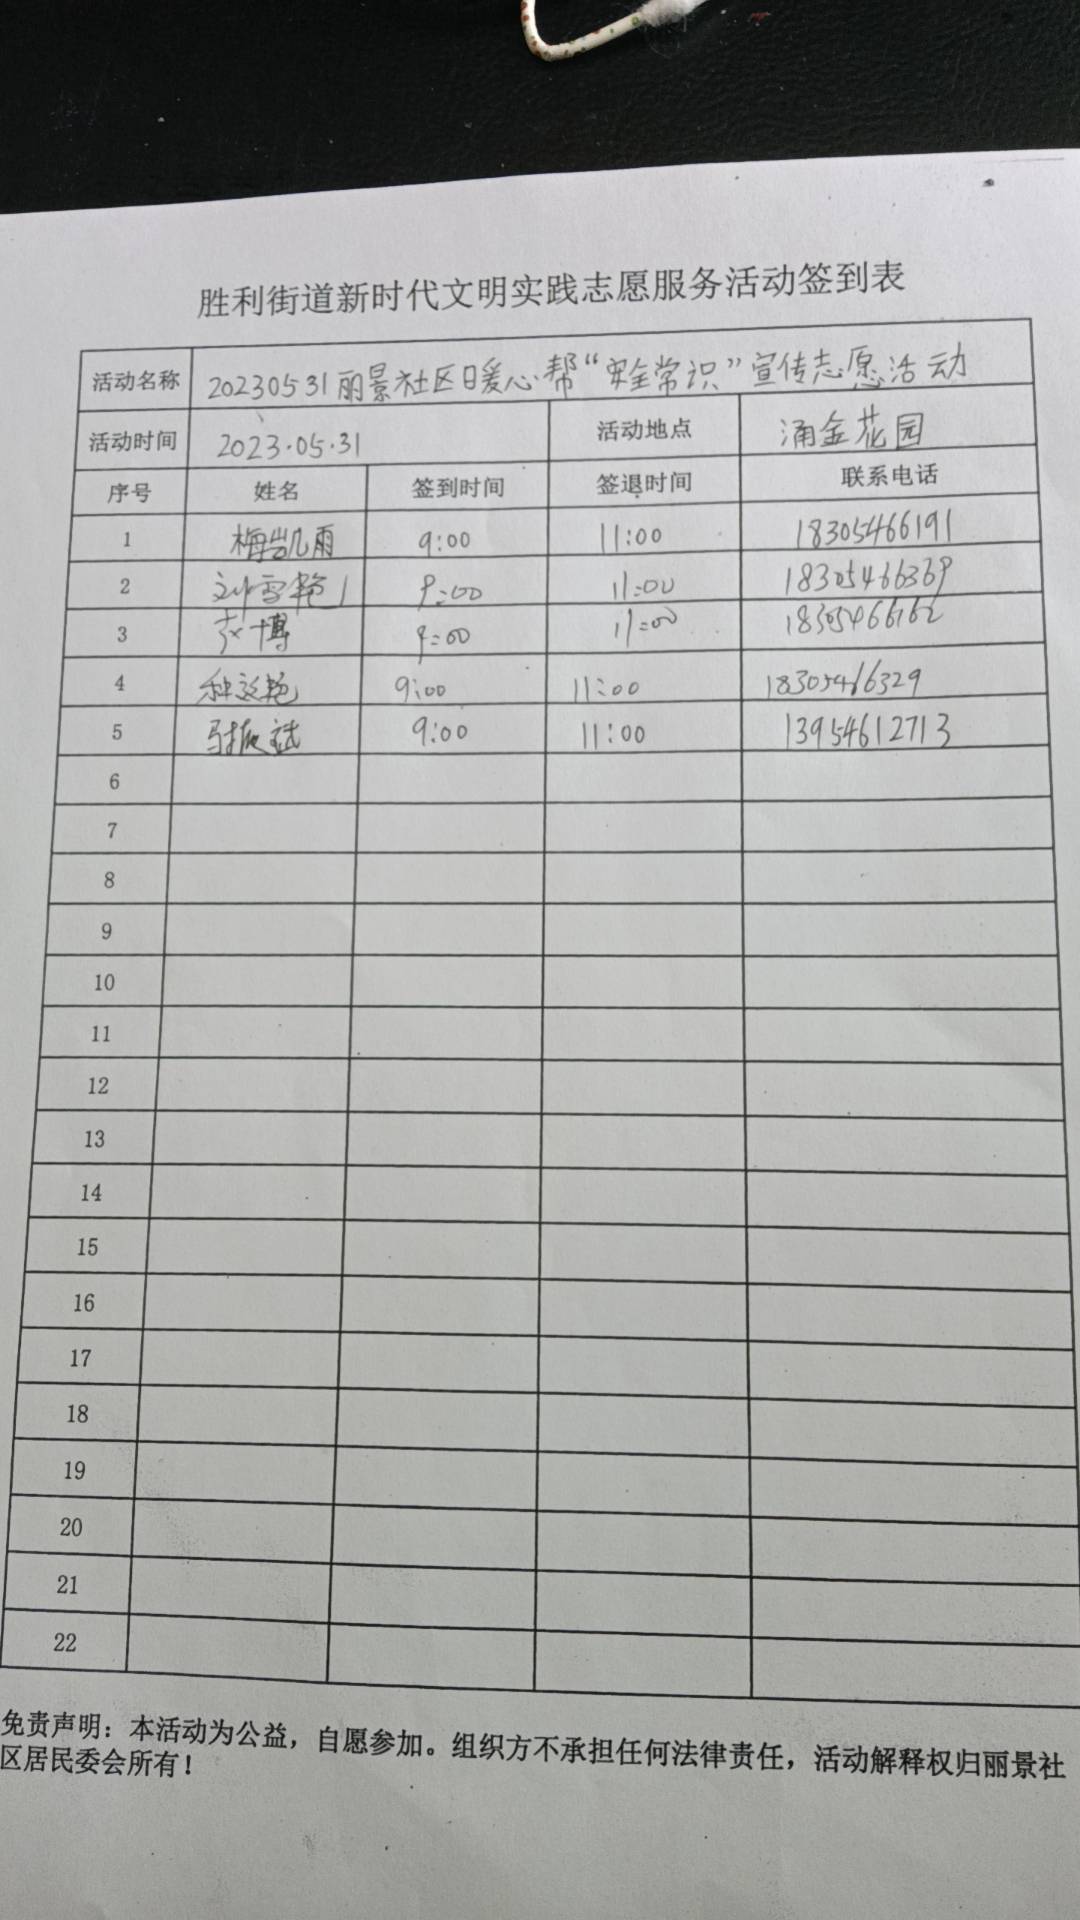 胜利街道新时代文明实践志愿服务活动签到表
活动名称 20230531丽景社区日暖心帮“安全常识”宣传志愿活动
活动时间 2023.05.31 活动地点 涌金花园
序号 姓名 签到时间 签退时间 联系电话
1 梅凯雨 9:00 11:00 18305466191
2 刘雪艳 9:00 11:00 18305466369
3 赵博 9:00 11:00 18305466162
4 9:00 11:00 18305466329
5 9:00 11:00 13954612713
6
7
8
9
10
11
12
13
14
15
16
17
18
19
20
21
22
免责声明：本活动为公益，自愿参加。组织方不承担任何法律责任，活动解释权归丽景社
区居民委会所有！